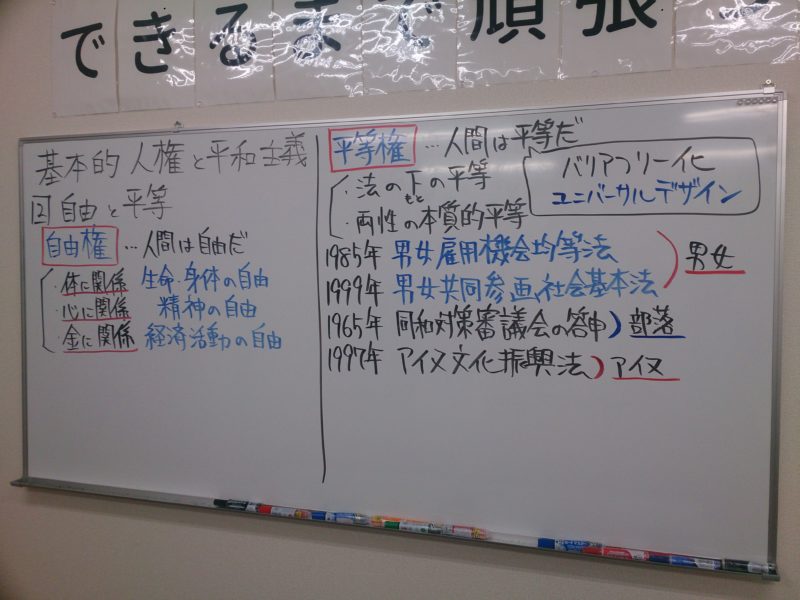 できるまで頑張
基本的人権と平和主義
2 自由と平等
自由権 …人間は自由だ
・体に関係 生命・身体の自由
・心に関係 精神の自由
・金に関係 経済活動の自由
平等権 …人間は平等だ
・法の下の平等
もと
・両性の本質的平等
バリアフリー化
ユニバーサルデザイン
1985年 男女雇用機会均等法
1999年 男女共同参画社会基本法
男女
1965年 同和対策審議会の答申 部落
1997年 アイヌ文化振興法 アイヌ